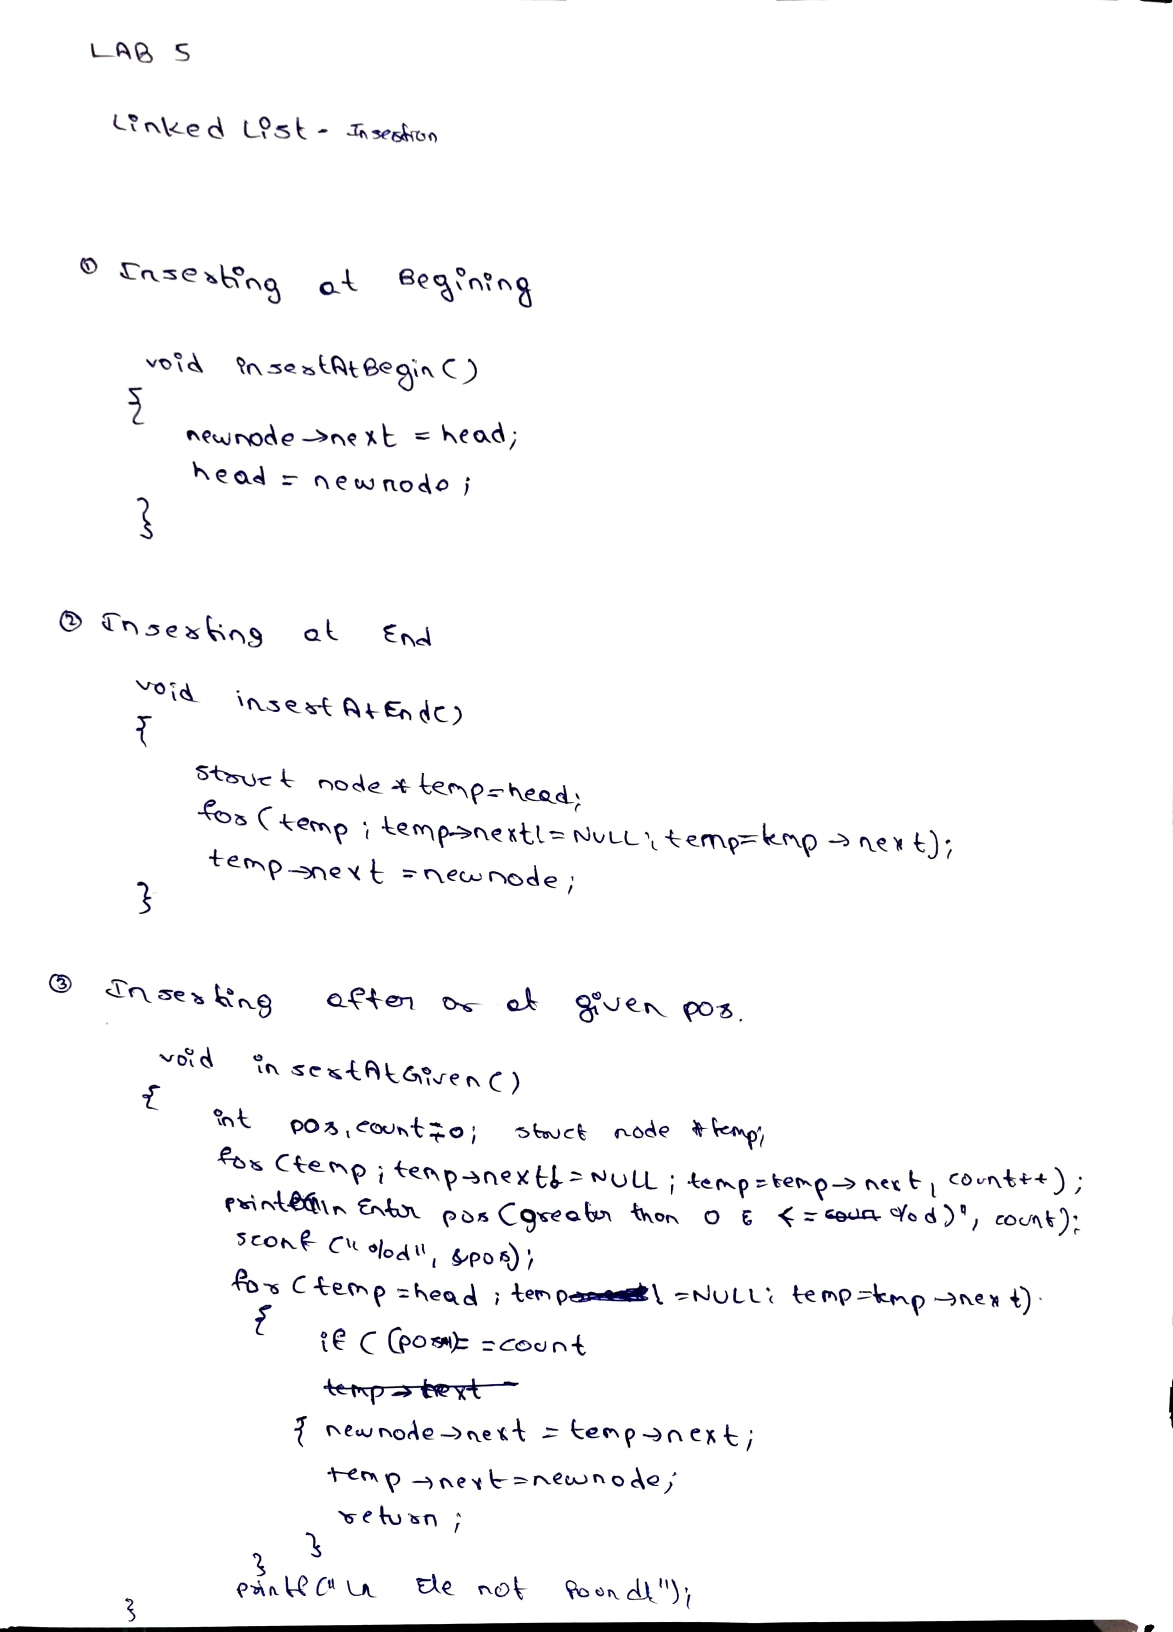 LAB 5
Linked List - Insertion
① Inserting at Begining
void insertAtBegin()
{
newnode →next = head;
head = newnode;
}
② Inserting at End
void insertAtEnd()
{
struct node * temp=head;
for (temp ; temp→next!=NULL; temp=temp → next);
temp→next = newnode;
}
③ Inserting after or at given pos.
void insertAtGiven()
{
int pos, count=0; struct node *temp;
for (temp ; temp→next!=NULL ; temp=temp→ next, count++);
Enter pos (greater than 0 & <= %d)", count);
scanf ("%d", &pos);
for (temp =head ; temp != NULL; temp=temp →next)
{
if ( = count
temp→next
{ newnode →next = temp→next;
temp →next=newnode;
return ;
}
}
printf("\n Ele not found!");
}